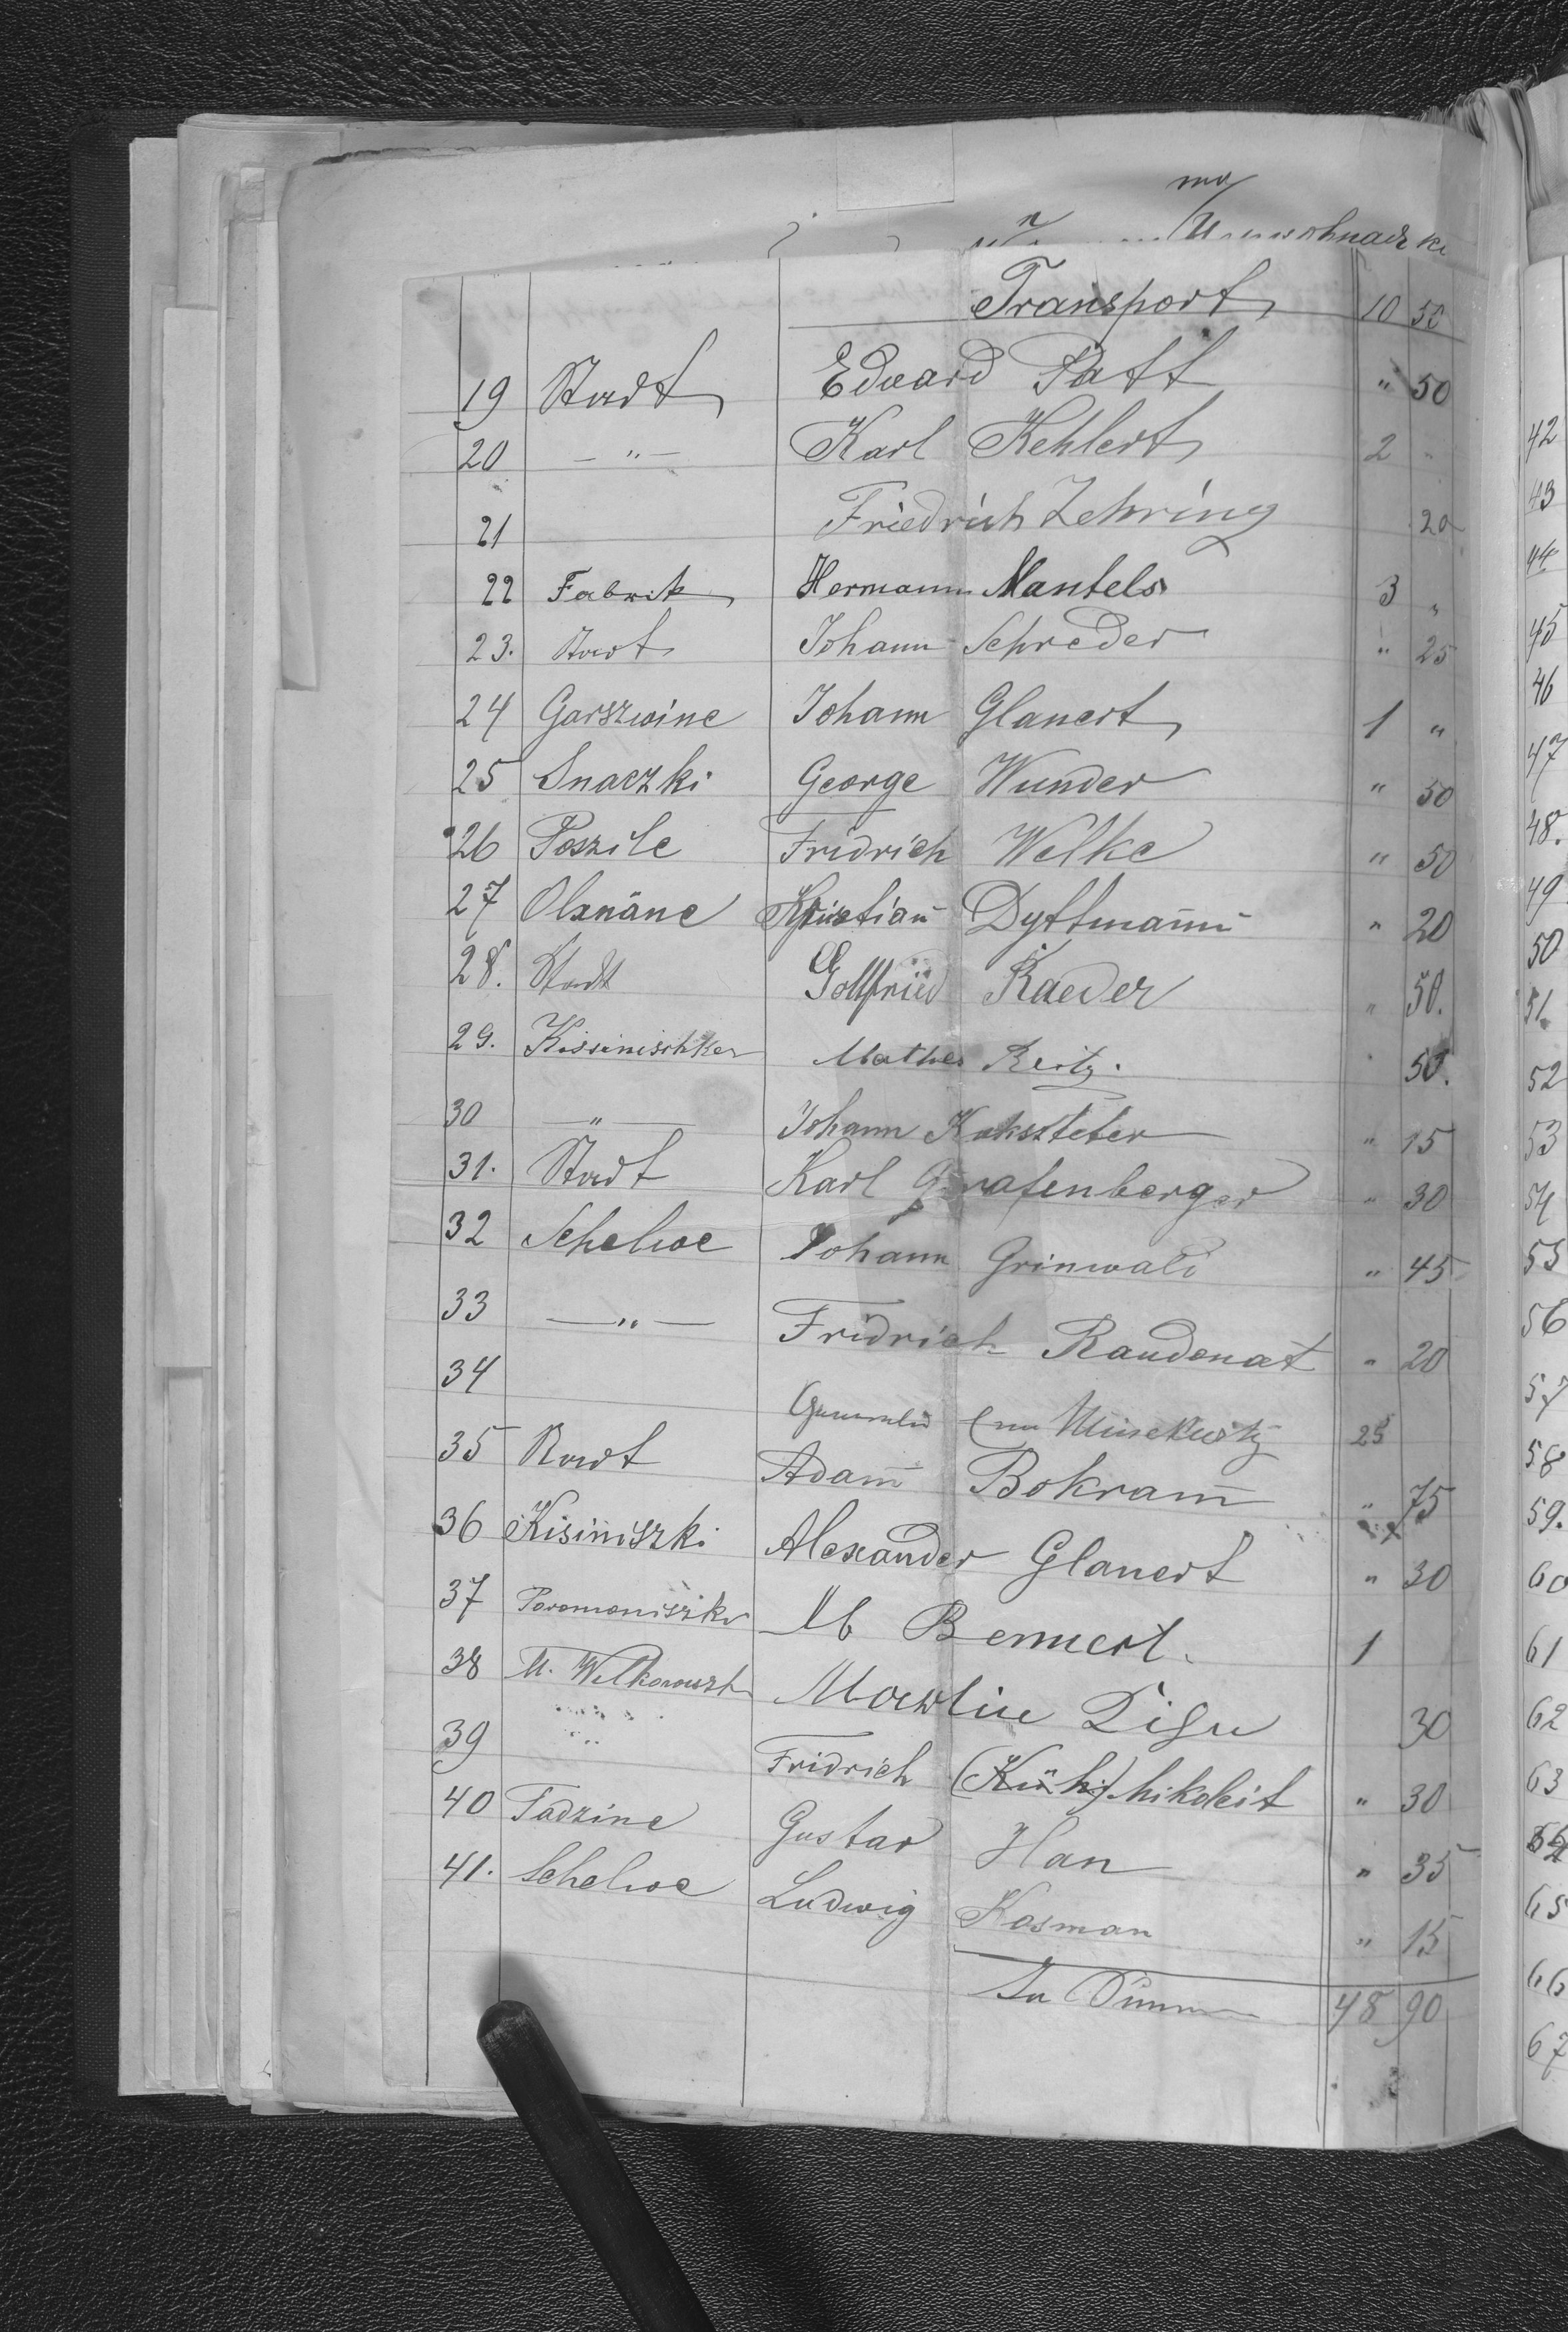 Transport 10 50
19 Stadt Edward Patt " 50
20 — " — Karl Kehlert 2 "
21 Friedrich Zehring 20
22 Fabrik Hermann Mantels 3 "
23. Stadt Johann Schreder " 25
24 Garszwine Johann Glanert 1 "
25 Snaczki George Wunder " 50
26 Poszile Fridrich Welke " 50
27 Olxnäne Kristian Dyttmann " 20
28. Stadt Gottfried Raeder " 50.
29. Kissinischker Mathes Reitz. " 50.
30 — " — Johann Koksteter " 15
31. Stadt Karl Grafenberger " 30
32 Schelwe Johann Grinwald " 45
33 — " — Fridrich Raudonat " 20
34 25
35 Stadt Adam Bokram " 75
36 Kisiniszki Alexander Glanert " 30
37 Poromoniszki M Bennert. 1
38 M. 30
39 Fridrich (Küh) hikoleit " 30
40 Tadzine Gustav Han " 35
41. Schelwe Ludwig Kosman " 15
In Summ 48 90
42
43
44
45
46
47
48.
49.
50
51.
52
53
54
55
56
57
58
59.
60
61
62
63
65
66
67